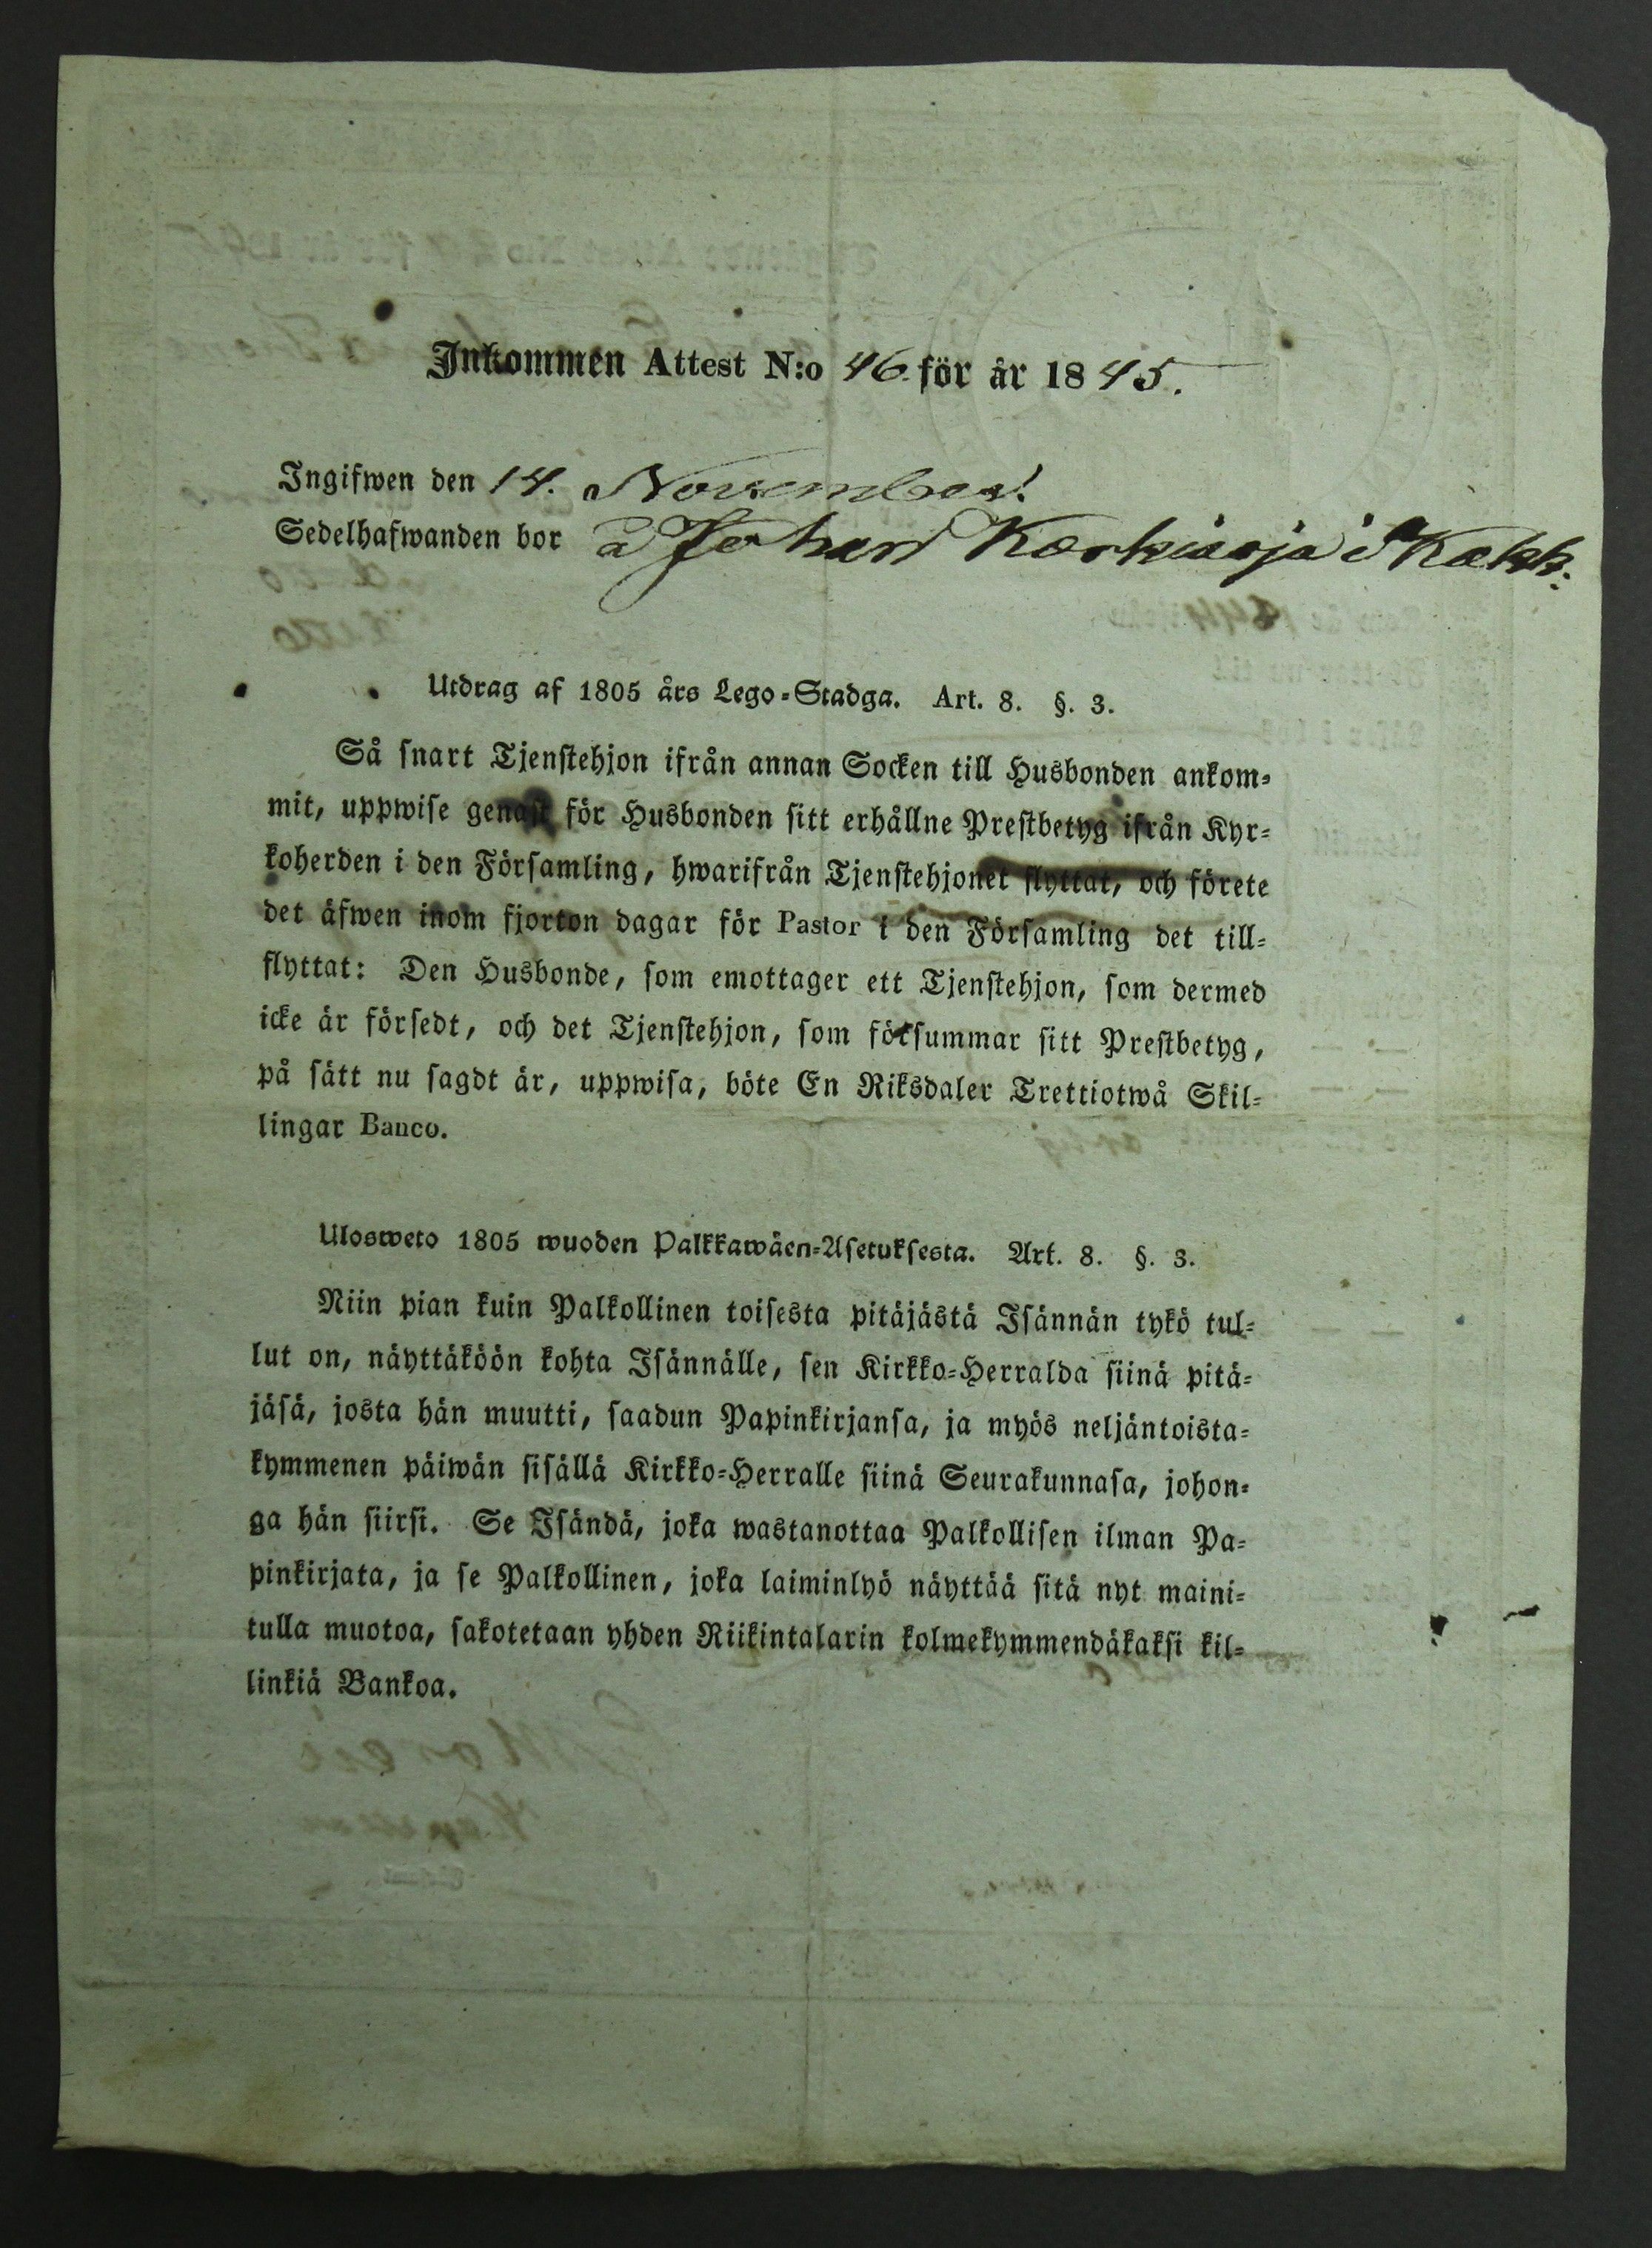 Inkommen Attest N:o 46. för år 1845.
Ingifwen den 14. November.
Sedelhafwanden bor å Johan i
Utdrag af 1805 års Lego-Stadga. Art. 8. §. 3.
Så snart Tjenstehjon ifrån annan Socken till Husbonden ankom-
mit, uppwise genast för Husbonden sitt erhållne Prestbetyg ifrån Kyr-
koherden i den Församling, hwarifrån Tjenstehjonet flyttat, och förete
det äfwen inom fjorton dagar för Pastor i den Församling det till-
flyttat: Den Husbonde, som emottager ett Tjenstehjon, som dermed
icke är försedt, och det Tjenstehjon, som försummar sitt Prestbetyg,
på sätt nu sagdt är, uppwisa, böte En Riksdaler Trettiotwå Skil-
lingar Banco.
Ulosweto 1805 wuoden Palkkawäen-Asetuksesta. Art. 8. §. 3.
Niin pian kuin Palkollinen toisesta pitäjästä Isännän tykö tul-
lut on, näyttäköön kohta Isännälle, sen Kirkko-Herralda siinä pitä-
jäsä, josta hän muutti, saadun Papinkirjansa, ja myös neljäntoista-
kymmenen päiwän sisällä Kirkko-Herralle siinä Seurakunnasa, johon-
ga hän siirsi. Se Isändä, joka wastanottaa Palkollisen ilman Pa-
pinkirjata, ja se Palkollinen, joka laiminlyö näyttää sitä nyt maini-
tulla muotoa, sakotetaan yhden Riikintalarin kolmekymmendäkaksi kil-
linkiä Bankoa.